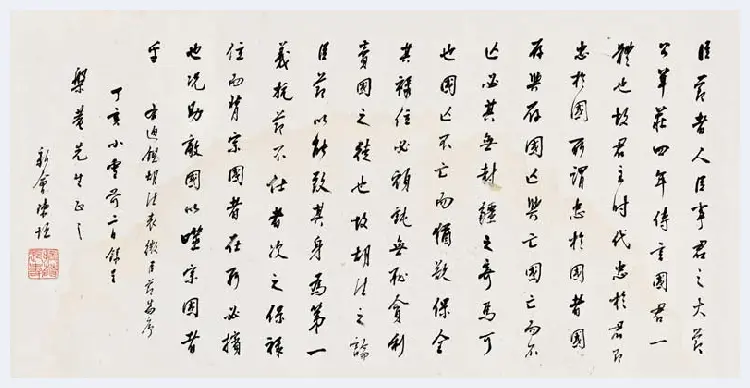 臣節者人臣事君之大節
公羊莊四年傳言國君一
體也故君主時代忠於君即
忠於國所謂忠於國者國
存與存國亡與亡國亡而不
亡必其無封疆之寄焉可
也國亡不亡而猶欲保全
其祿位必頑鈍無恥貪利
賣國之徒也故胡注之論
臣節以能致其身為第一
義抗節不仕者次之保祿
位而背宗國者在所必擯
也況助敵國以噬宗國者
乎
右通鑑胡注表微臣節篇序
丁亥小雪前二日錄呈
槃菴先生正之
新會陳垣